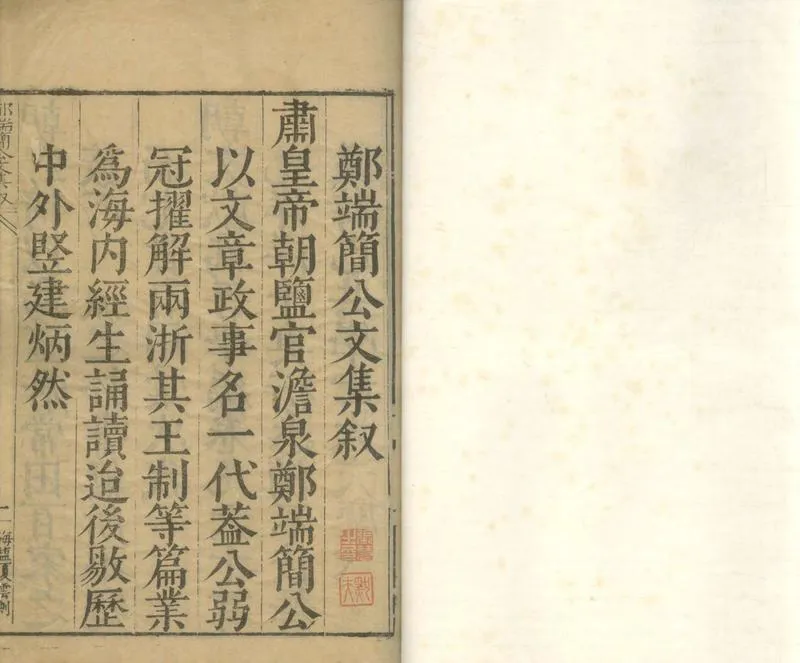 鄭端簡公文集叙
肅皇帝朝鹽官澹泉鄭端簡公
以文章政事名一代葢公弱
冠擢解兩浙其王制等篇業
為海内經生誦讀迨後敭歷
中外竪建炳然
鄭端簡公文集叙
一
海鹽夏雲刻